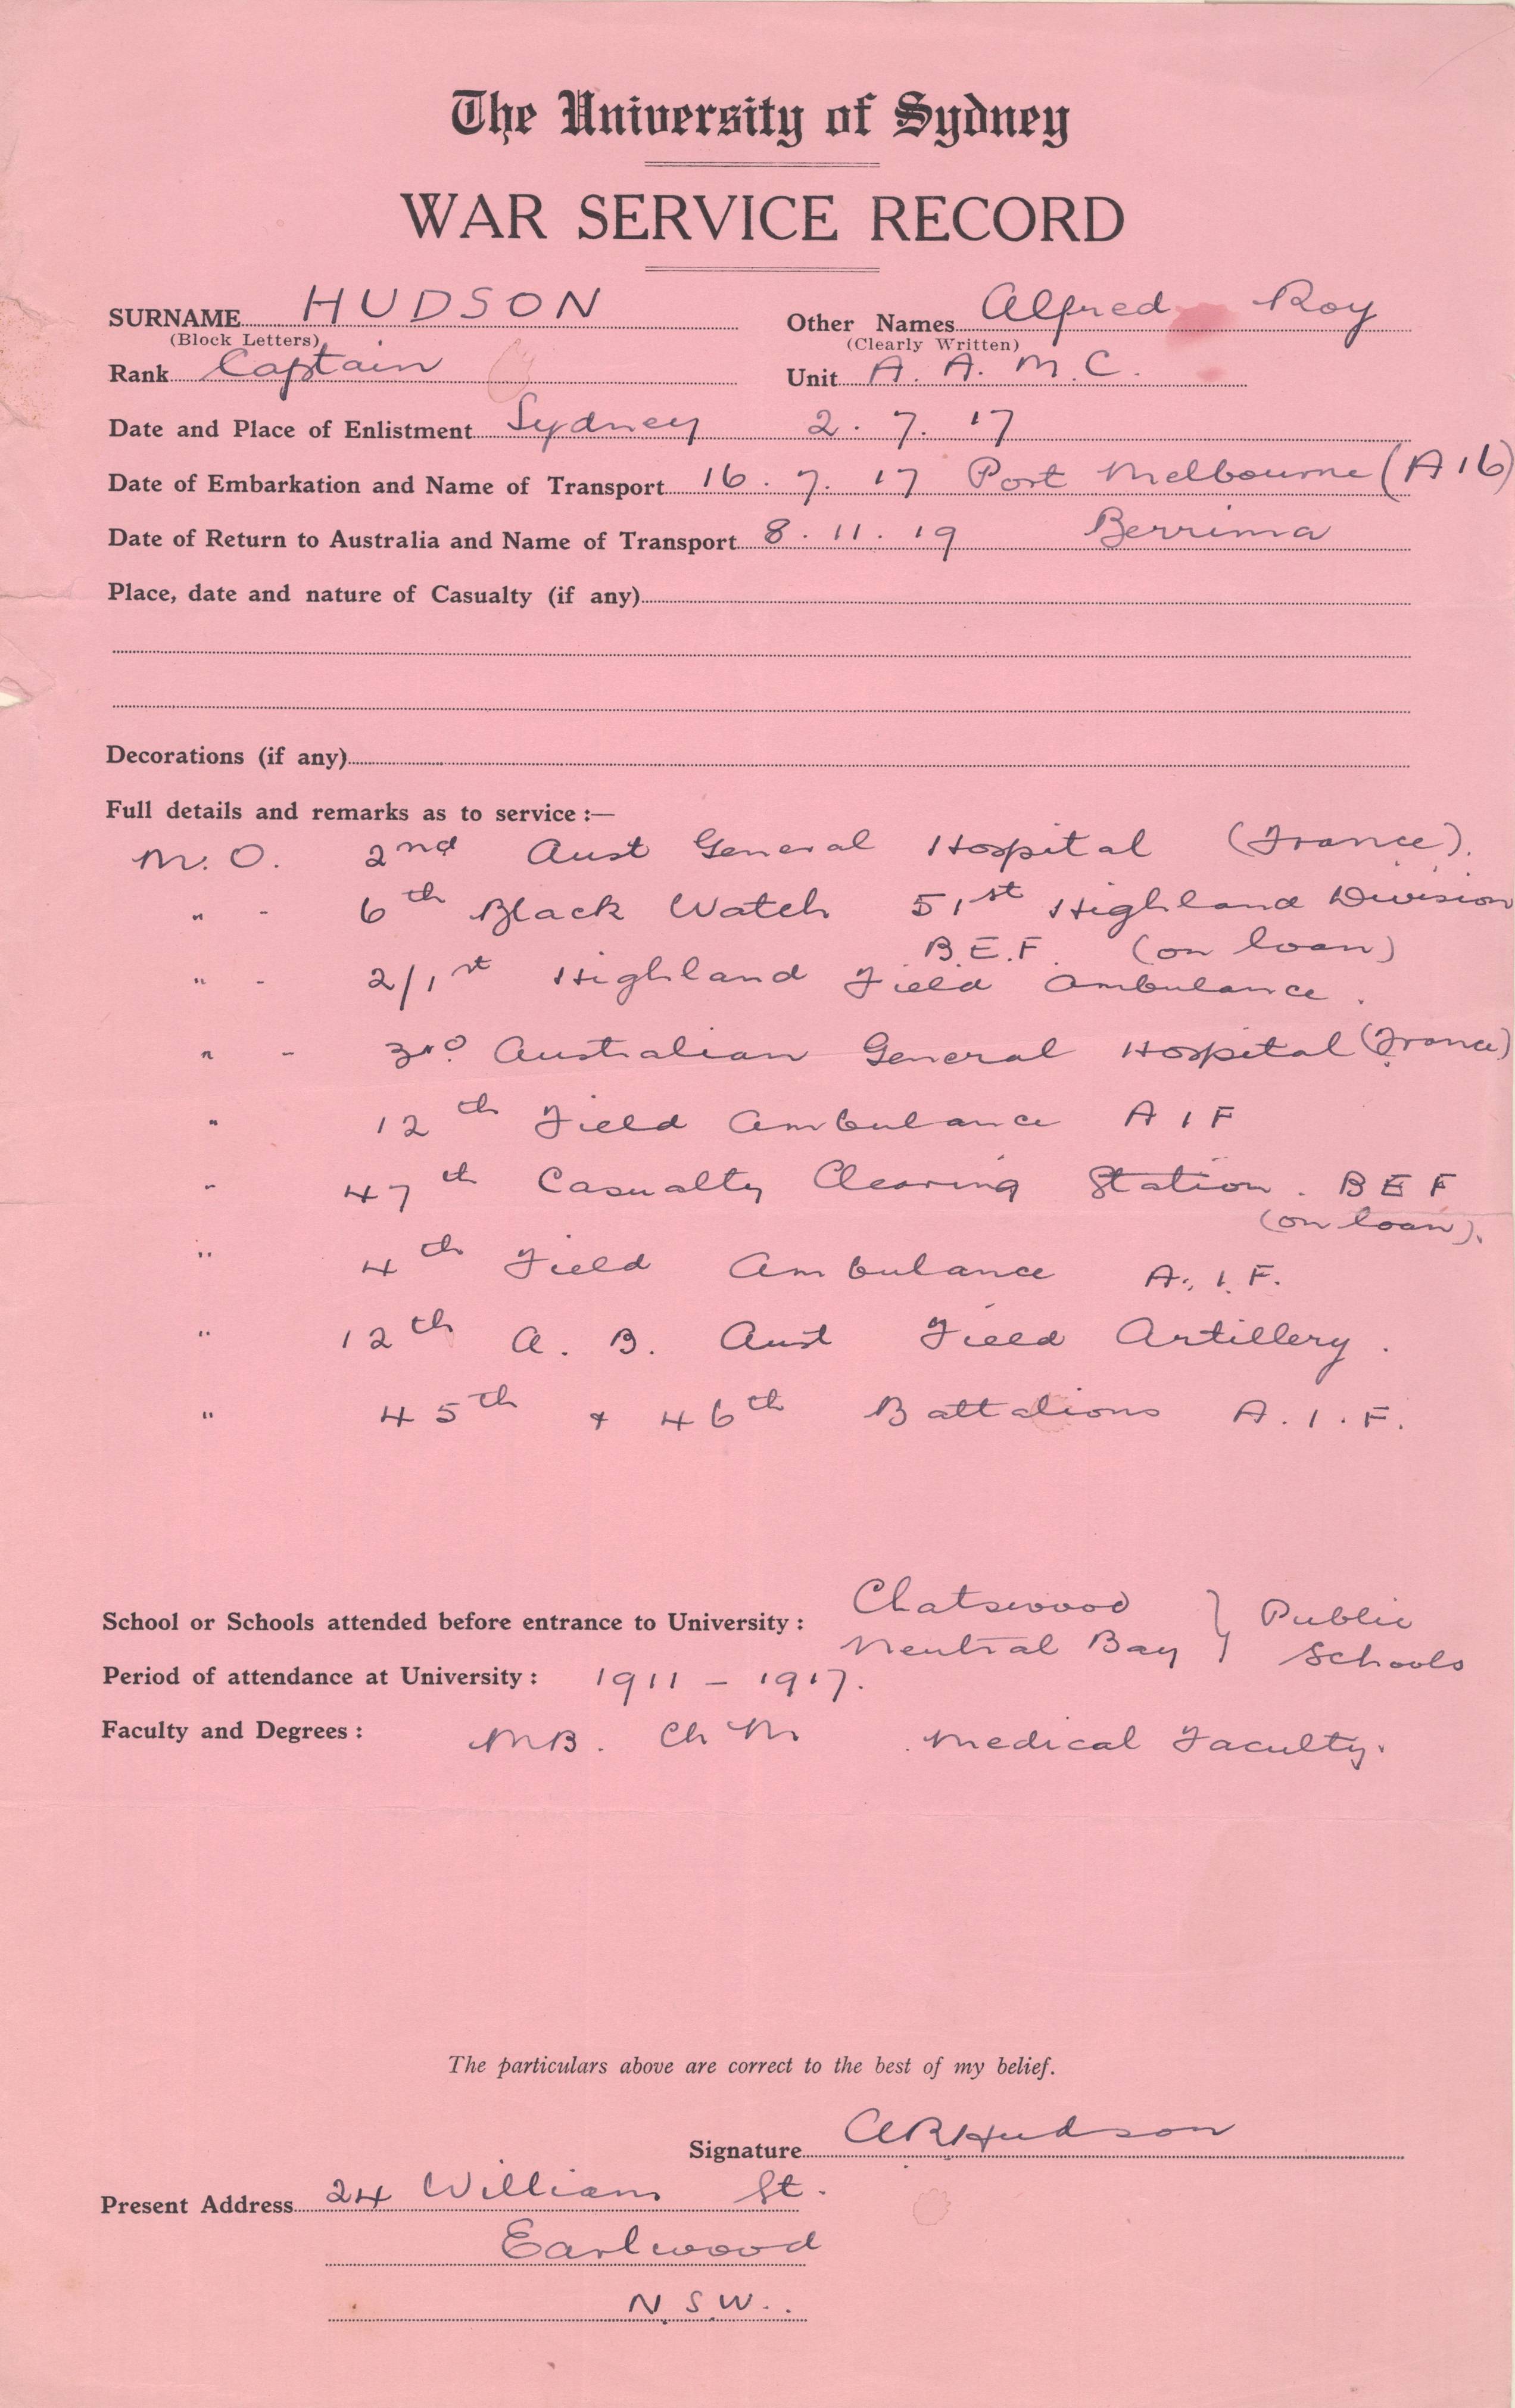 The University of Sydney
WAR SERVICE RECORD
SURNAME HUDSON Other Names Alfred Roy
(Block Letters) (Clearly Written)
Rank Captain Unit A. A. M. C.
Date and Place of Enlistment Sydney 2. 7. 17
Date of Embarkation and Name of Transport 16. 7. 17 Port Melbourne (A16)
Date of Return to Australia and Name of Transport 8. 11. 19 Berrima
Place, date and nature of Casualty (if any)
Decorations (if any)
Full details and remarks as to service :—
M. O. 2nd Aust General Hospital (France).
" - 6th Black Watch 51st Highland Division
B.E.F. (on loan)
" - 2/1st Highland Field Ambulance.
" - 3rd Australian General Hospital (France)
" 12th Field Ambulance A I F
" 47th Casualty Clearing Station. B E F
(on loan).
" 4th Field Ambulance A. I. F.
" 12th A. B. Aust Field Artillery.
" 45th & 46th Battalions A. I. F.
School or Schools attended before entrance to University : Chatswood } Public
Neutral Bay } Schools
Period of attendance at University : 1911 - 1917.
Faculty and Degrees : MB. Ch M Medical Faculty.
The particulars above are correct to the best of my belief.
Signature ARHudson
Present Address 24 William St.
Earlwood
N.S.W..